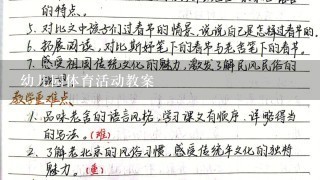 的特点。
5. 对比文中孩子们过春节的情景，说说自己是怎样过春节的。
6. 拓展阅读，对比斯妤笔下的春节与老舍笔下的春节。
7. 感受祖国传统文化的魅力，激发了解民风民俗的
幼儿园体育活动教案
教学重难点
1. 品味老舍的语言风格，学习课文有顺序，详略得当
的写法。（难）
2. 了解老北京的风俗习惯，感受传统年文化的独特
魅力。（重）